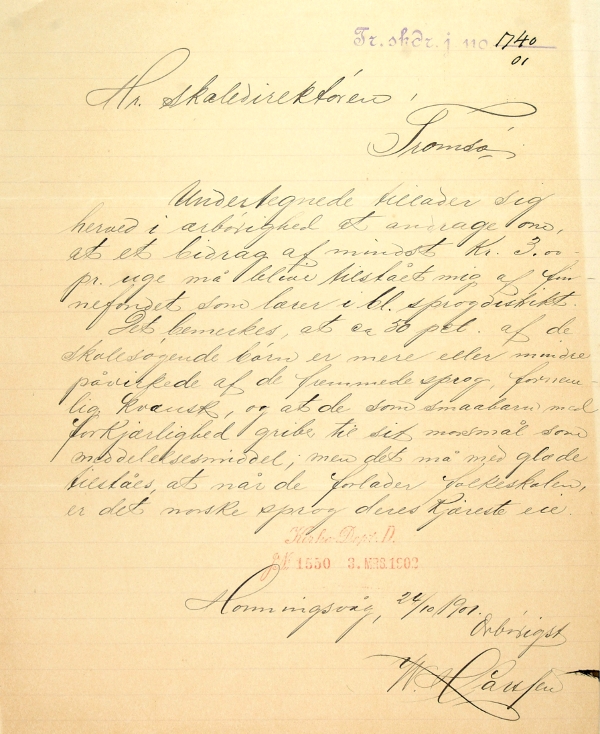 Tr. skdr. j no 1740
01
Hr. skoledirektören,
Tromsö.
Undertegnede tillader sig
herved i ærbörighed at andrage om,
at et bidrag af mindst Kr. 3.00
pr. uge må blive tilstået mig af fin-
nefondet som lærer i bl. sprogdistrikt.
Det bemerkes, at ca 30 pct. af de
skolesögende börn er mere eller mindre
påvirkede af de fremmede sprog, fornem-
lig kvænsk, og at de som smaabarn med
forkjærlighed gribe til sit morsmål som
meddelelsesmiddel; men det må med glæde
tilståes, at når de forlader folkeskolen,
er det norske sprog deres kjæreste eie.
Kirke-Dept. D.
JN 1550 3. MRS. 1902
Honningsvåg, 24/10 1901.
Ærbörigst